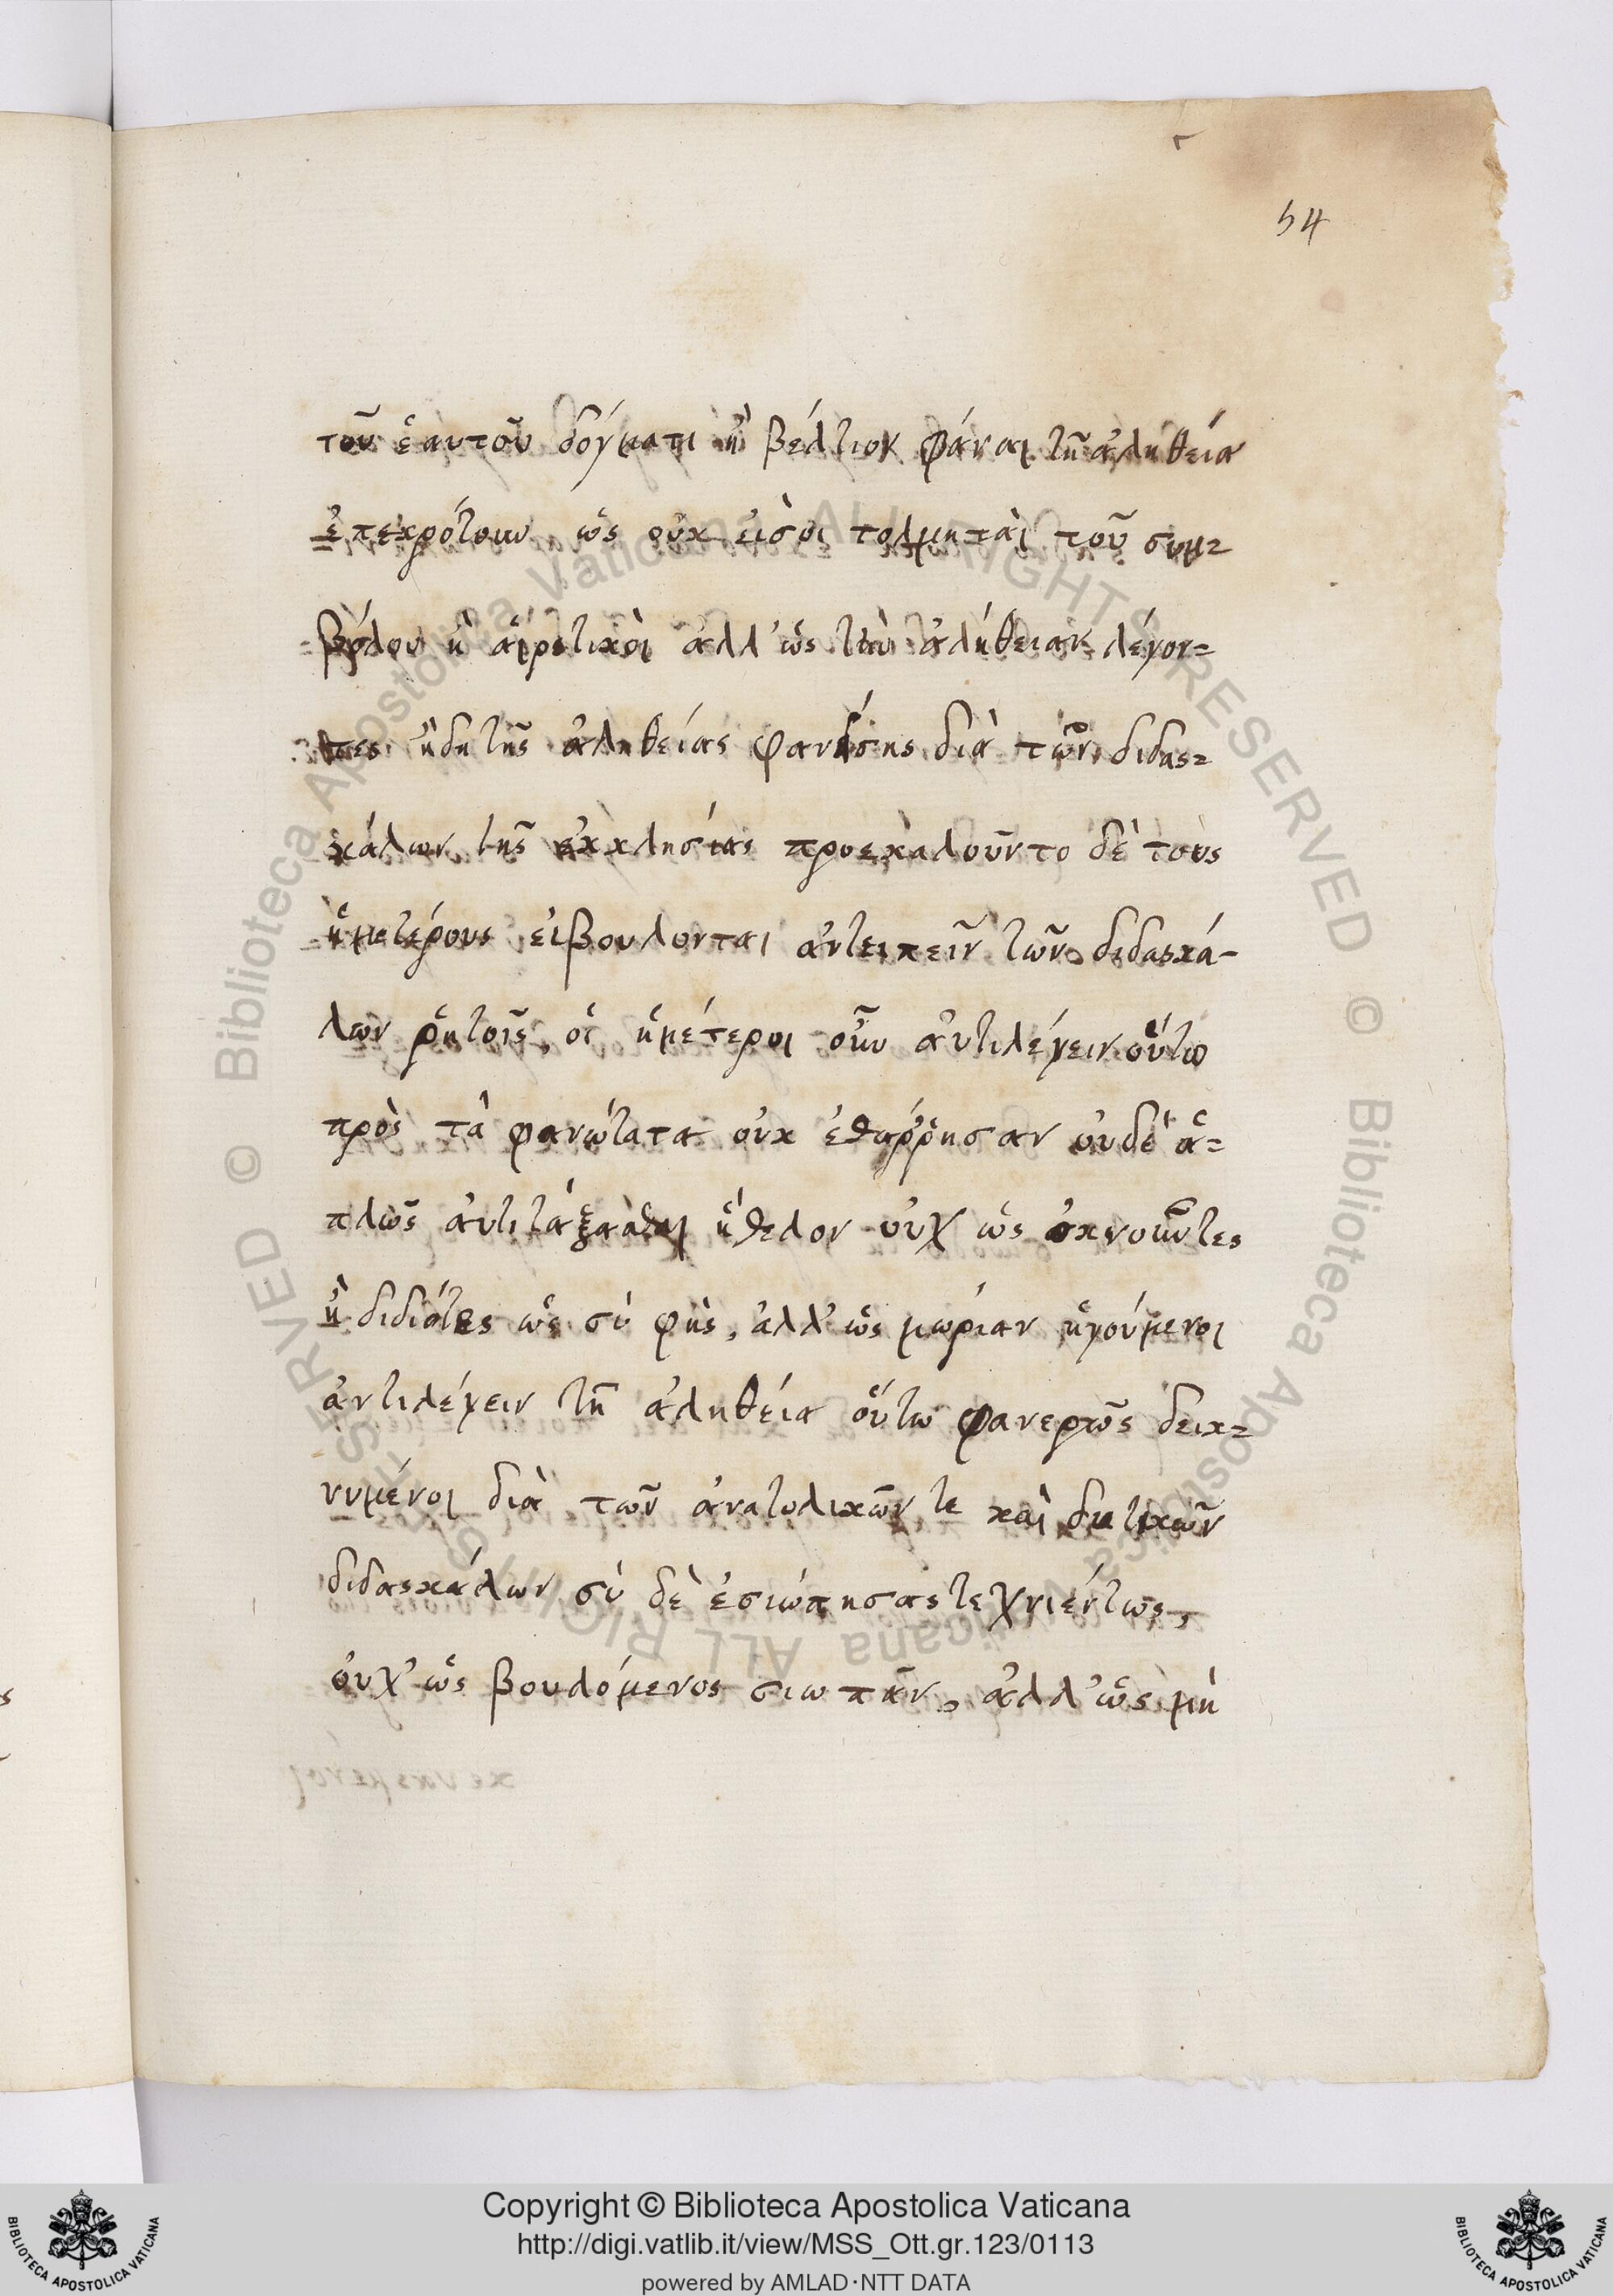 54
τοῦ ἑαυτοῦ δόγματι ἢ βέλτιον φάναι τῆ ἀληθεία
ἐπεκρότουν ὡς οὐκ εἰσὶ τολμηταὶ τοῦ συμ=
βόλου ἢ αἱρετικοὶ ἀλλ' ὡς τὴν ἀλήθειαν λέγον=
τες ἤδη τῆς ἀληθείας φανείσης διὰ τῶν διδασ=
κάλων τῆς ἐκκλησίας προεκαλοῦντο δὲ τοὺς
ἡμετέρους εἰ βουλονται ἀντειπεῖν τῶν διδασκά-
λων ῥητοῖς, οἱ ἡμέτεροι οὖν ἀντιλέγειν οὕτω
πρὸς τὰ φανώτατα οὐκ ἐθαῤῥησαν οὐδὲ ἁ=
πλῶς ἀντιτάξασθαι ἤθελον οὐχ ὡς ὀκνοῦντες
ἢ διδιότες ὡς σύ φὴς, ἀλλ' ὡς μωρίαν ἡγούμενοι
ἀντιλέγειν τῆ ἀληθεία οὕτω φανερῶς δεικ=
νυμένοι διὰ τῶν ἀνατολικῶν τε καὶ δυτικῶν
διδασκάλων σὺ δὲ ἐσιώπησας τεχνιέντως,
οὐχ' ὡς βουλόμενος σιωπᾶν, ἀλλ' ὡς μὴ
© Biblioteca Apostolica Vaticana ALL RIGHTS RESERVED
© Biblioteca Apostolica Vaticana ALL RIGHTS RESERVED
Copyright © Biblioteca Apostolica Vaticana
http://digi.vatlib.it/view/MSS_Ott.gr.123/0113
powered by AMLAD·NTT DATA
BIBLIOTECA APOSTOLICA VATICANA
BIBLIOTECA APOSTOLICA VATICANA